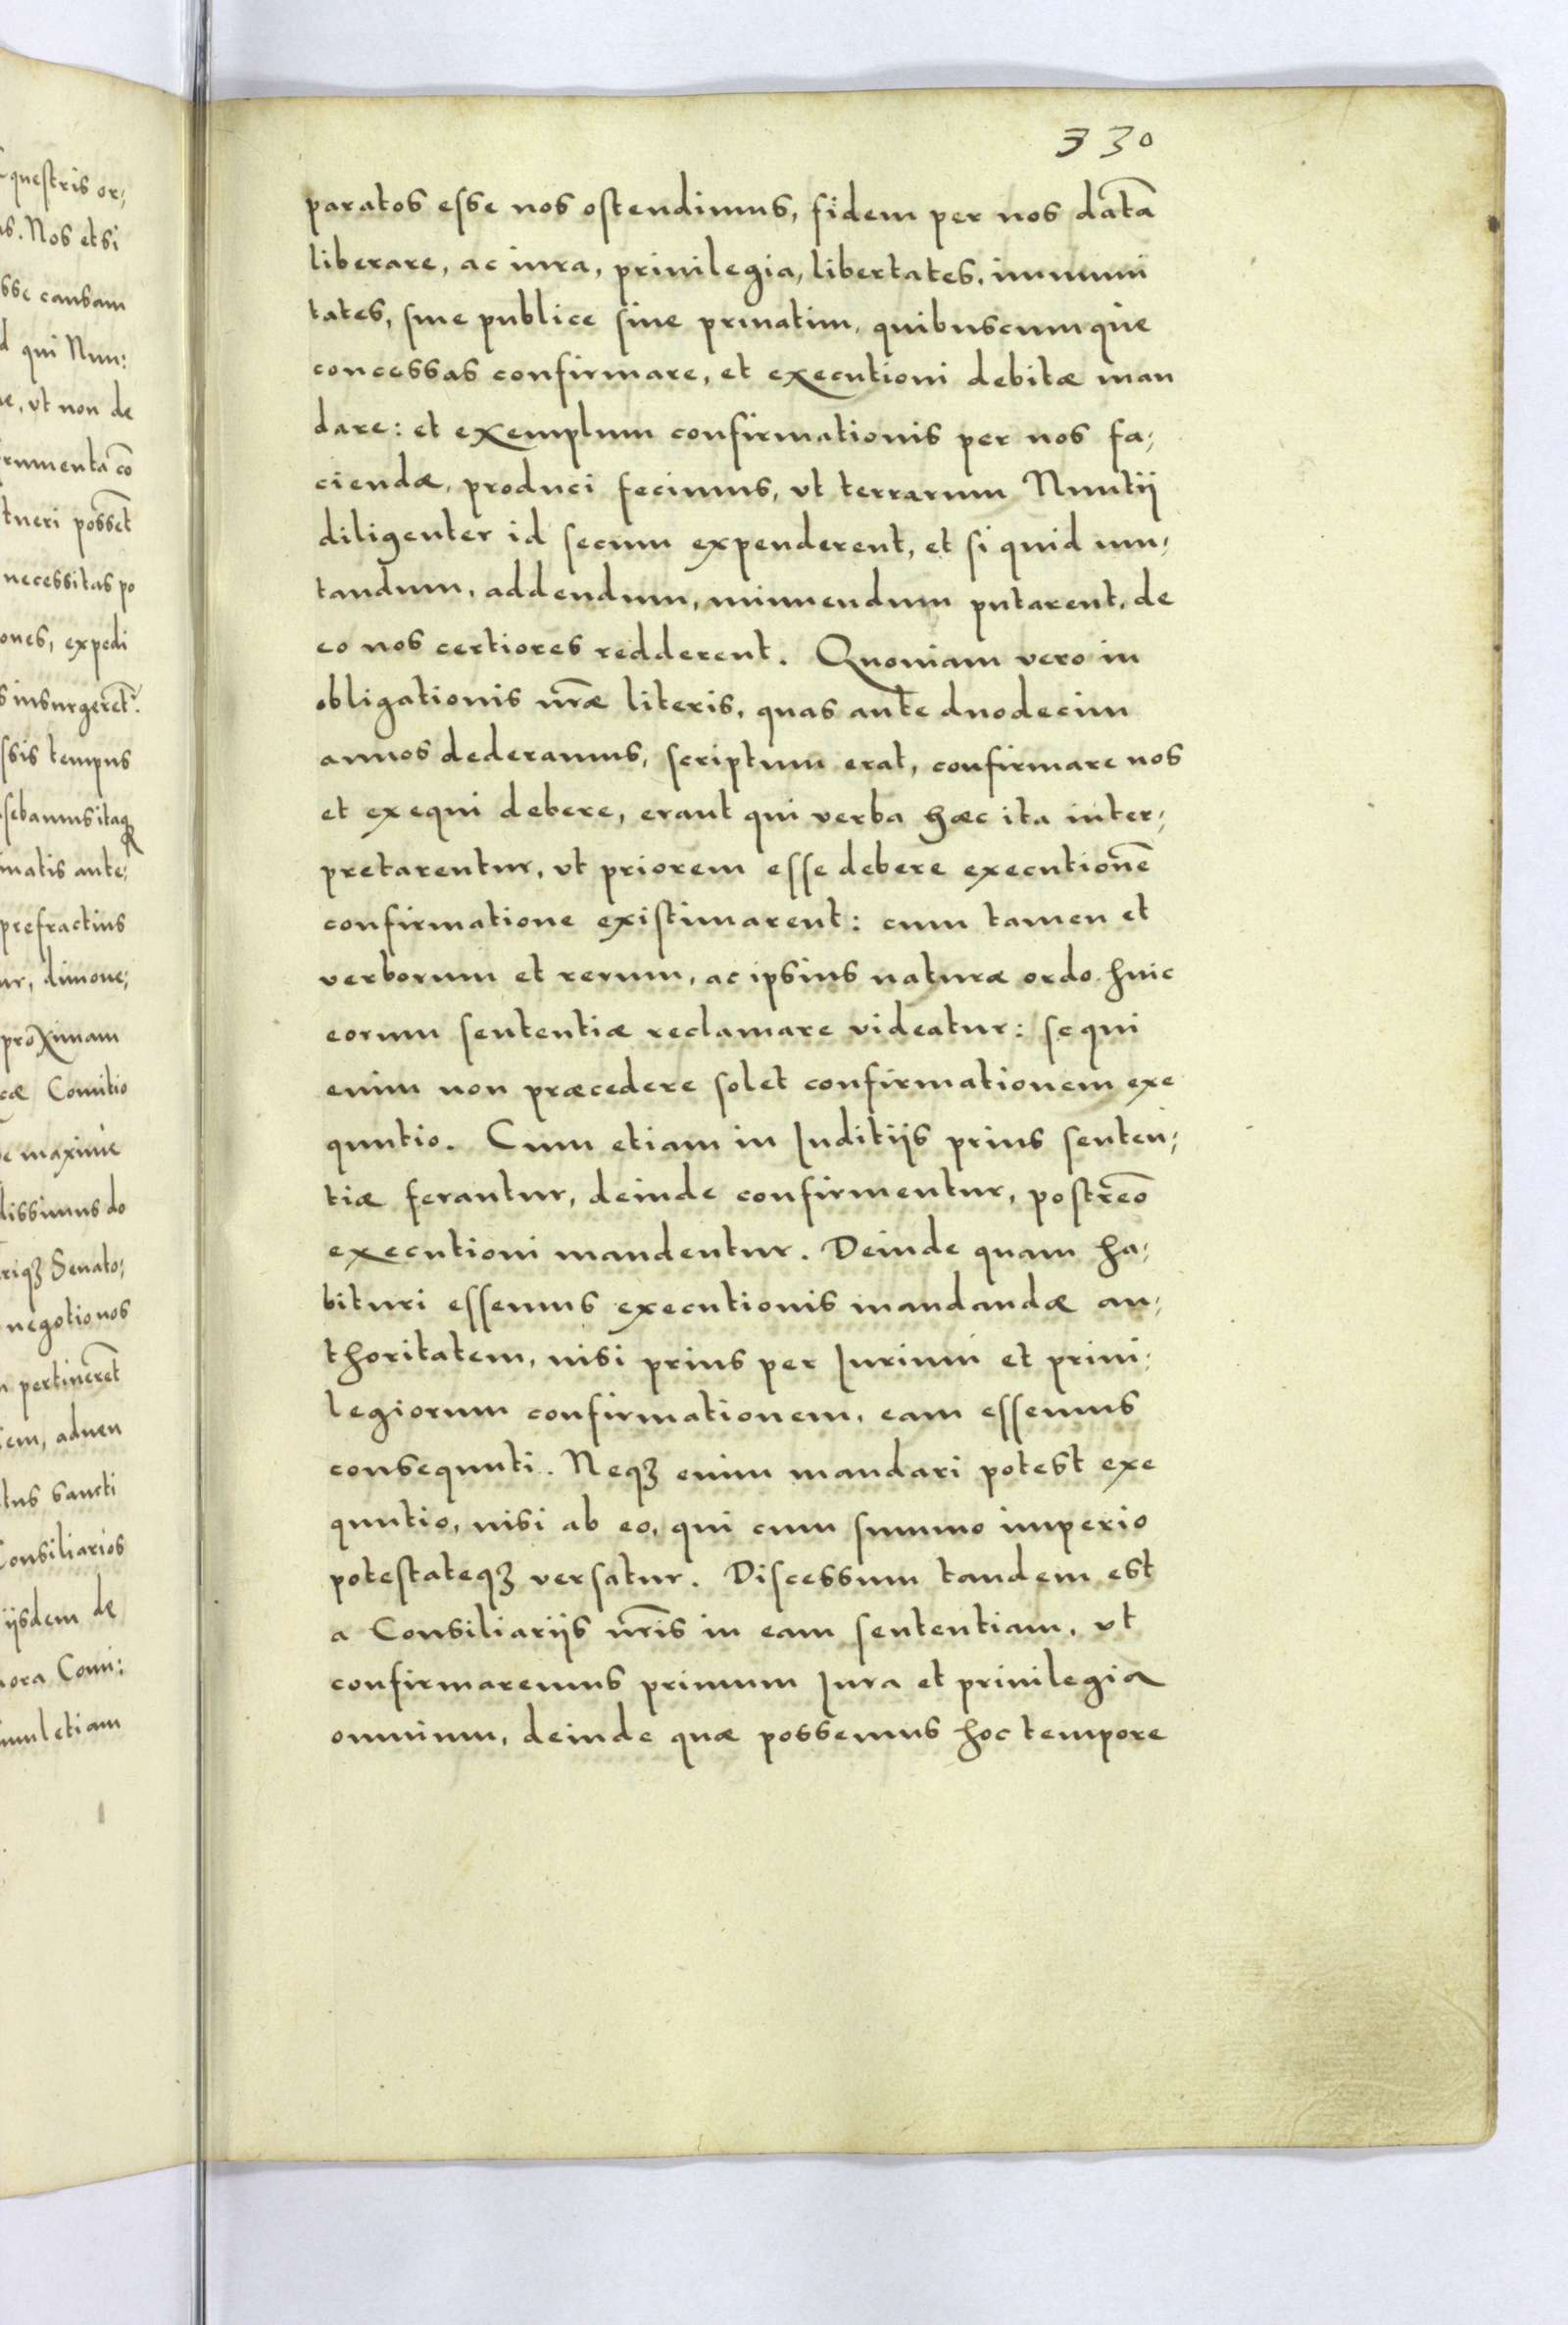 330
paratos esse nos ostendimus, fidem per nos datã
liberare, ac iura, priuilegia, libertates, immuni
tates, siue publice siue priuatim, quibuscumque
concessas confirmare, et executioni debitæ man
dare: et exemplum confirmationis per nos fa;
ciendæ, produci fecimus, vt terrarum Nuntij
diligenter id secum expenderent, et si quid mu;
tandum, addendum, minuendum putarent, de
eo nos certiores redderent. Quoniam vero in
obligationis nr̃æ literis, quas ante duodecim
annos dederamus, scriptum erat, confirmare nos
et exequi debere, erant qui verba hæc ita inter;
pretarentur, vt priorem esse debere executionẽ
confirmatione existimarent: cum tamen et
verborum et rerum, ac ipsius naturæ ordo huic
eorum sententiæ reclamare videatur: sequi
enim non præcedere solet confirmationem exe
quutio. Cum etiam in Iuditijs prius senten;
tiæ ferantur, deinde confirmentur, postreõ
executioni mandentur. Deinde quam ha;
bituri essemus executionis mandandæ au;
thoritatem, nisi prius per Iurium et priui;
legiorum confirmationem, eam essemus
consequuti. Neqꝫ enim mandari potest exe
quutio, nisi ab eo, qui cum summo imperio
potestateqꝫ versatur. Discessum tandem est
a Consiliarijs nr̃is in eam sententiam, vt
confirmaremus primum Iura et priuilegia
omnium, deinde quæ possemus hoc tempore
questris or;
as. Nos etsi
sse causam
d qui Nun:
ne, vt non de
rumenta cõ
tueri possẽt
necessitas po
ones, expedi
s insurgerẽt.
ssis tempus
sebamus itaqꝫ
matis ante;
prefractius
ur, dimoue;
proximam
cæ Comitio
e maxime
dissimus do
riqꝫ Senato;
negotio nos
n pertinerẽt
iem, aduen
tus sancti
Consiliarios
ijsdem de
nora Comi:
imul etiam